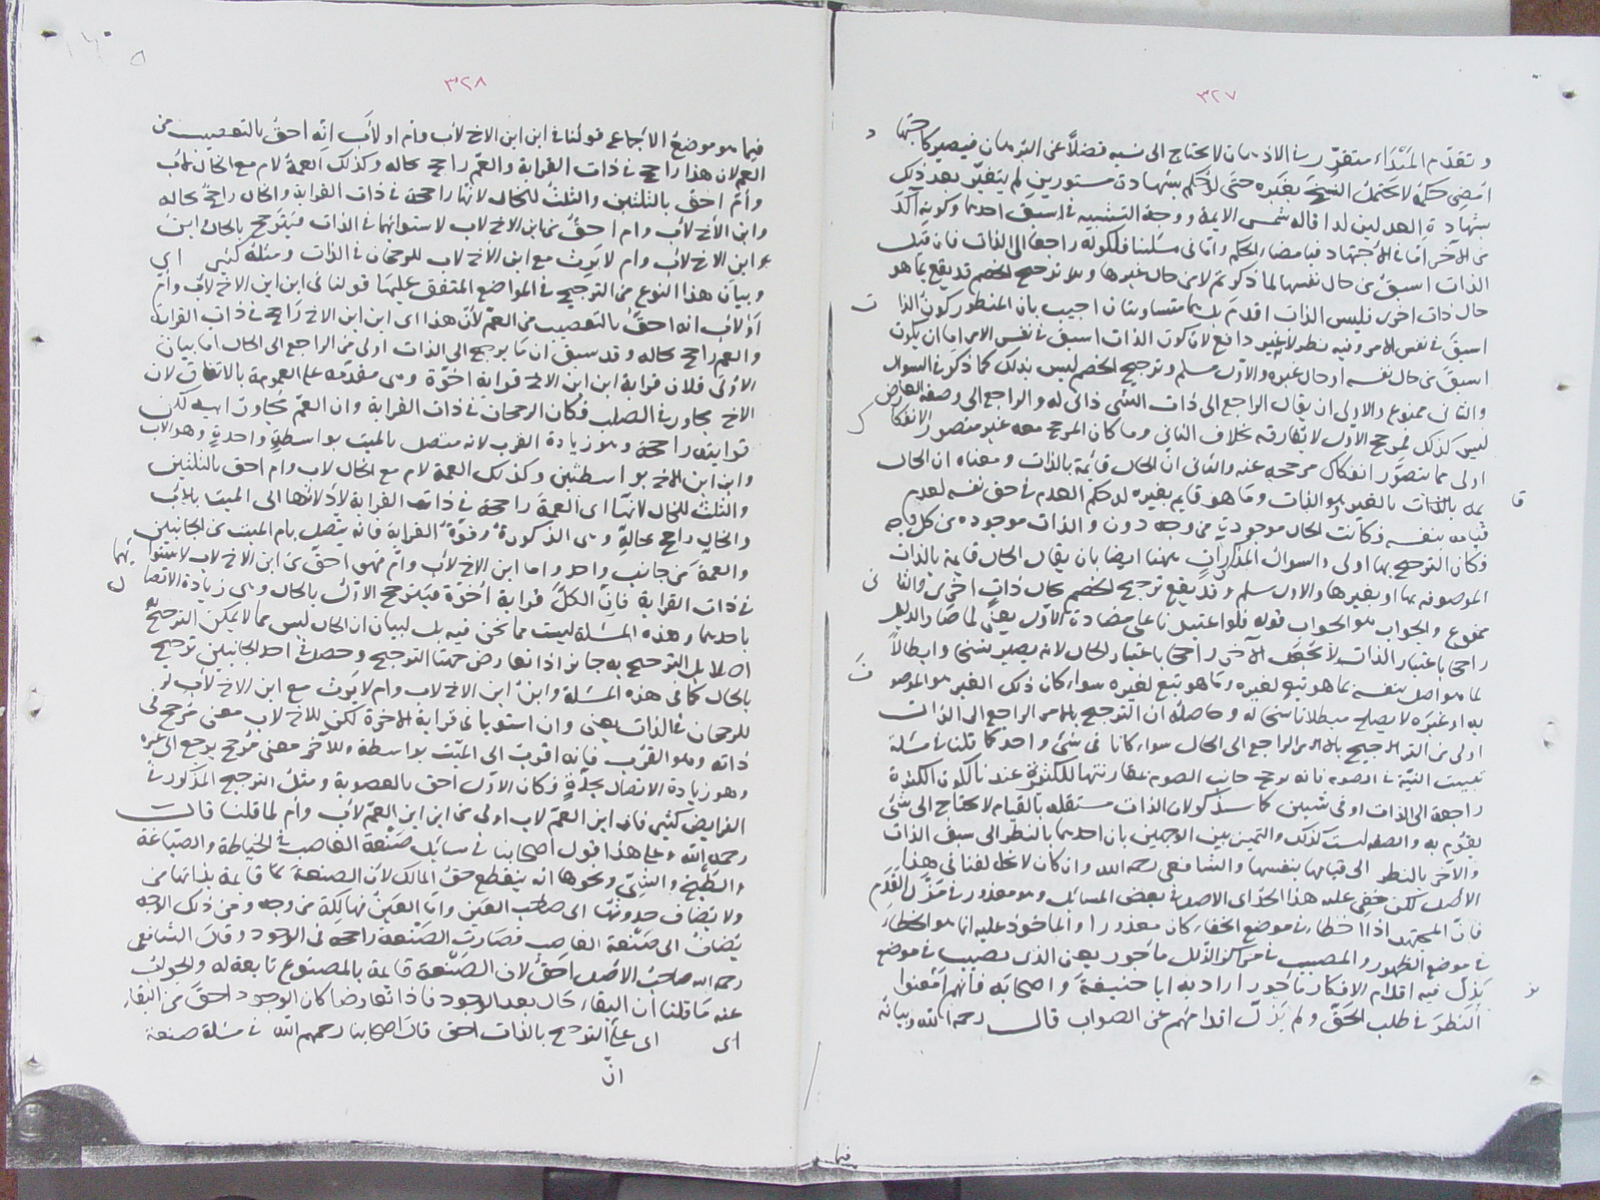 ٣٢٧
و تقدم المبتداء متقرر في الاذهان لا يحتاج الى نسبه فضلاً عن البرهان فيصير كاجتهاد
امضى حكمه لا يحتمل النسخ بغيره حتى لو حكم بشهادة مستورين لم يتغير بعد ذلك
بشهادة العدلين لذا قاله شمس الايمة ووجه التشبيه في اسبق احدهما وكونه آكد
من الآخر اما في الاجتهاد فبامضاء الحكم واما في مسئلتنا فلكونه راجعا الى الذات فان قيل
الذات اسبق من حال نفسها لما ذكرتم لا من حال غيرها وترجيح الخصم قد يقع بما هو
حال ذات اخرى فليس الذات اقدم بل هما متساويتان اجيب بان المنظور كون الذات
اسبق في نفس الامر وفيه نظر لانه غير دافع لان كون الذات اسبق في نفس الامر اما ان يكون
اسبق من حال نفسه او حال غيره والاول مسلم وترجيح الخصم ليس بذلك كما ذكر في السوال
والثاني ممنوع والاولى ان يقال الراجع الى ذات الشئ ذاتى له والراجع الى وصفه العارض
ليس كذلك فمرجح الاول لا يفارقه بخلاف الثاني وما كان المرجح معه غير متصور الانفكاك
اولى مما يتصور انفكاك مرجحه عنه والثاني ان الحال قائمة بالذات ومعناه ان الحال
قائمة بالذات بالغير وهو الذات وما هو قايم بغيره له حكم العدم في حق نفسه لعدم
قيامه بنفسه فكانت الحال موجودة من وجه دون والذات موجوده من كل وجه
فكان الترجيح بها اولى والسوال المذكور آت ههنا ايضا بان يقال الحال قايمة بالذات
الموصوفه بها او بغيرها والاول مسلم وقد يقع ترجيح الخصم بحال ذات اخرى والثاني
ممنوع والجواب هو الجواب قوله فلو اعتبرنا على مضادة الاول يعنى لما صار الدليل
راجحا باعتبار الذات لا يجعل الآخر راجحا باعتبار الحال لانه يصير نسخا وابطالاً
لما هو اصل بنفسه بما هو تبع لغيره وما هو تبع لغيره سواء كان ذلك الغير هو الموصوف
به او غيره لا يصلح مبطلا ناسخا له وحاصله ان الترجيح بالامر الراجع الى الذات
اولى من الترجيح بالامر الراجع الى الحال سواء كانا في شئ واحد كما قلنا في مسئلة
تبييت النية في الصوم فانه يرجح جانب الصوم بمقارنتها للكثرة عندنا لكون الكثرة
راجعة الى الذات او في شيئين كما سيذكر لان الذات مستقله بالقيام لا يحتاج الى شئ
يقوم به والصفه ليست كذلك والتمييز بين الوجهين بان احدهما بالنظر الى سبق الذات
والآخر بالنظر الى قيامها بنفسها والشافعى رحمه الله وان كان لا يخالفنا في هذا
الاصل لكن خفى عليه هذا الحد اى الاصل في بعض المسائل وهو معذور في مزل القدم
فان المجتهد اذا اخطاء في موضع الخفاء كان معذورا والماخوذ عليه انما هو الخطاء
في موضع الظهور والمصيب في مراكز الزلل ماجور يعنى الذى يصيب في موضع
يزل فيه اقدام الافكار ماجور اراد به ابا حنيفة واصحابه فانهم امعنوا
النظر في طلب الحق ولم يزل اقدامهم عن الصواب قال رحمه الله وبيانه
فيما
٣٢٨
فيما هو موضع الاجماع قولنا في ابن ابن الاخ لاب وام او لاب انه احق بالتعصيب من
العم لان هذا راجح في ذات القرابة والعم راجح بحاله وكذلك العمة لام مع الخال لاب
وام احق بالثلثين والثلث للخال لانها راجحة في ذات القرابة والخال راجح بحاله
وابن الاخ لاب وام احق من ابن الاخ لاب لاستوائهما في الذات فيترجح بالحال وابن
وابن الاخ لاب وام لا يرث مع ابن الاخ لاب للرجحان في الذات ومثله كثير اى
وبيان هذا النوع من الترجيح في المواضع المتفق عليها قولنا في ابن ابن الاخ لاب وام
او لاب انه احق بالتعصيب من العم لان هذا اى ابن ابن الاخ راجح في ذات القرابة
والعم راجح بحاله وقد سبق ان ما يرجع الى الذات اولى من الراجع الى الحال اما بيان
الاول فلان قرابة ابن ابن الاخ قرابة اخوة وهى مقدمه على العمومة بالاتفاق لان
الاخ مجاور في الصلب فكان الرجحان في ذات القرابة وان العم مجاور ابيه لكن
قرابته راجحة وهو زيادة القرب لانه متصل بالميت بواسطة واحدة وهو الاب
وابن ابن الاخ بواسطتين وكذلك العمة لام مع الخال لاب وام احق بالثلثين
والثلث للخال لانها اى العمة راجحة في ذات القرابة لادلائها الى الميت بالاب
والخال راجح بحالة وهى الذكورة وقوة القرابة فانه يتصل بام الميت من الجانبين
والعمة من جانب واحد واما ابن الاخ لاب وام فهو احق من ابن الاخ لاب لاستوائهما
في ذات القرابة فان الكل قرابة اخوة فيترجح الاول بالحال وهى زيادة الاتصال
باحدهما وهذه المسئلة ليست مما نحن فيه بل لبيان ان الحال ليس مما لا يمكن الترجيح به
اصلا بل الترجيح به جايز اذا تعارض جهتا الترجيح وحصل في احد الجانبين ترجيح
بالحال كما في هذه المسئلة وابن ابن الاخ لاب وام لا يرث مع ابن الاخ لاب
للرجحان في الذات يعنى وان استويا في قرابة الاخوة لكن للاخ لاب معنى مرجح في
ذاته وهو القرب فانه اقرب الى الميت بواسطة وللآخر معنى مرجح يرجع الى غيره
وهو زيادة الاتصال بجدة فكان الاول احق بالعصوبة ومثل الترجيح المذكور في
الفرايض كثير فان ابن العم لاب اولى من ابن ابن العم لاب وام لما قلنا قال
رحمه الله وعلى هذا قول اصحابنا في مسايل صنعة الغاصب في الخياطة والصياغة
والطبخ والشى ونحوها انه ينقطع حق المالك لان الصنعة قايمة بذاتها من
ولا يضاف حدوثها الى صاحب العين واما العين فهالكة من وجه ومن ذلك الوجه
يضاف الى صنعة الغاصب فصارت الصنعة راجحه في الوجود وقال الشافعى
رحمه الله صاحب الاصل احق لان الصنعة قايمة بالمصنوع تابعة له والجواب
عنه ما قلنا ان البقاء حال بعد الوجود فاذا تعارضا كان الوجود احق من البقاء
اى اى على الترجيح بالذات احق قال اصحابنا رحمهم الله في مسئلة صنعة
ان